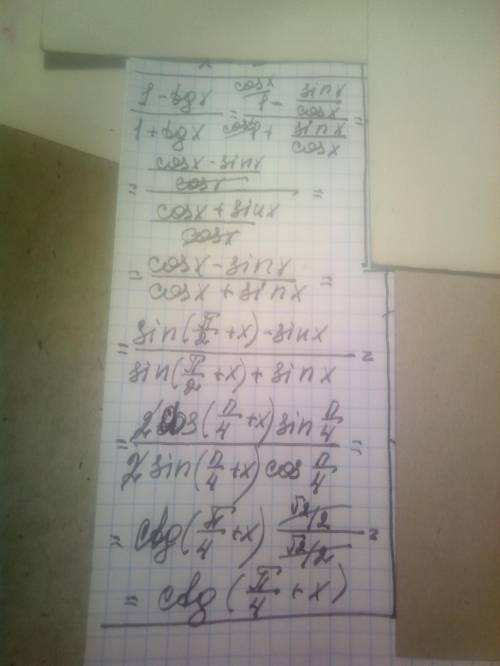 (1 - tgx)/(1 + tgx) = (cosx/1 - sinx/cosx)/(cosx/1 + sinx/cosx) =
= ((cosx - sinx)/cosx)/((cosx + sinx)/cosx) =
= (cosx - sinx)/(cosx + sinx) =
= (sin(π/2 + x) - sinx)/(sin(π/2 + x) + sinx) =
= (2cos(π/4 + x) sin π/4)/(2sin(π/4 + x) cos π/4) =
= ctg(π/4 + x) (√2/2)/(√2/2) =
= ctg(π/4 + x)